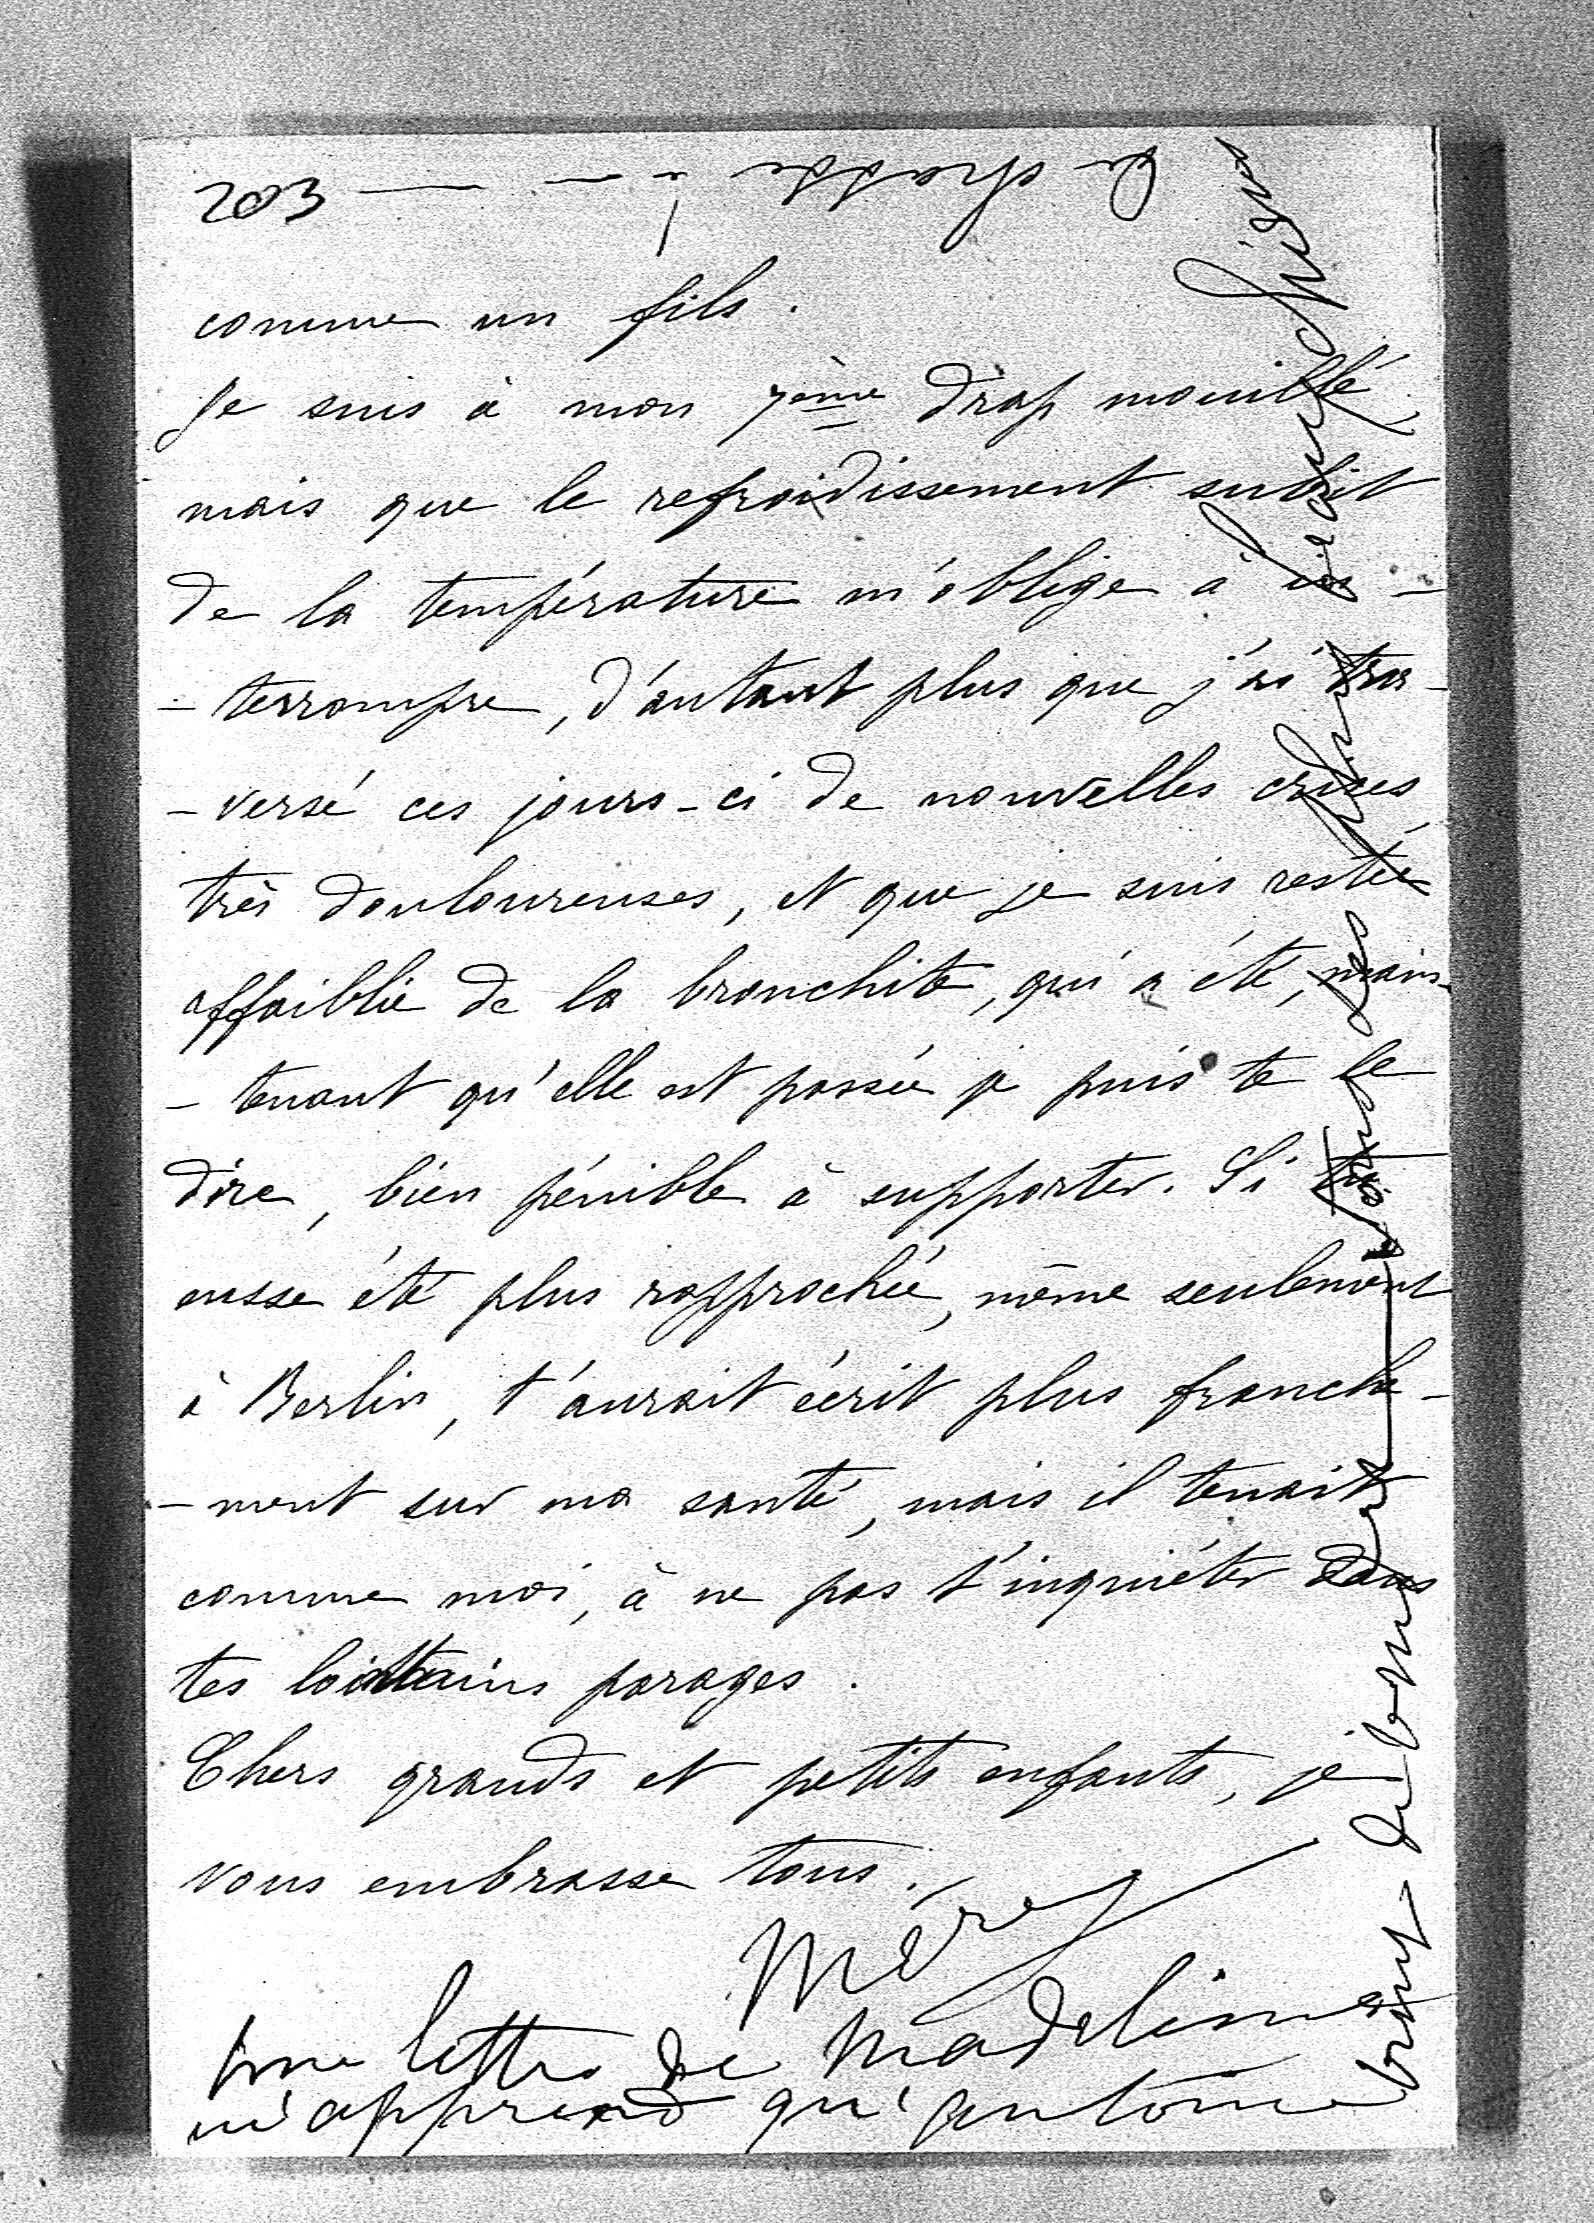 203
comme un fils.
Je suis à mon 7ème drap mouillé,
mais que le refroidissement subit
de la température m'oblige à in-
-terrompre, d'autant plus que j'ai tra-
-versé ces jours-ci de nouvelles crises
très douloureuses, et que je suis restée
affaiblie de la bronchite, qui a été, main-
-tenant qu'elle est passée je puis te le
dire, bien pénible à supporter. Si tu
eusse été plus rapprochée, même seulement
à Berlin, t'aurait écrit plus franche-
-ment sur ma santé, mais il tenait
comme moi, à ne pas t'inquiéter dans
tes lointains parages.
Chers grands et petits enfants, je
vous embrasse tous.
Mère
une lettre de Madeleine
m'apprend qu'Antoine
des plus